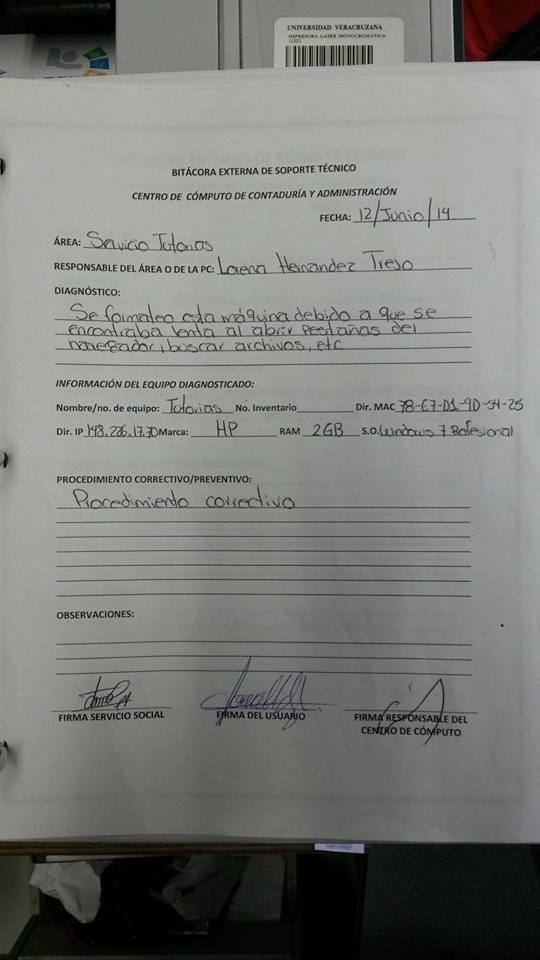 UNIVERSIDAD VERACRUZANA
IMPRESORA LASER MONOCROMATICA
BITÁCORA EXTERNA DE SOPORTE TÉCNICO
CENTRO DE CÓMPUTO DE CONTADURÍA Y ADMINISTRACIÓN
FECHA: 12/Junio/14
ÁREA: Servicio Tutorias
RESPONSABLE DEL ÁREA O DE LA PC: Lorena Hernandez Treso
DIAGNÓSTICO:
Se formateo esta máquina debido a que se
encontraba lenta al abrir pestañas del
navegador, buscar archivos, etc
INFORMACIÓN DEL EQUIPO DIAGNOSTICADO:
Nombre/no. de equipo: Tutorias No. Inventario Dir. MAC 78-E7-D1-9D-54-25
Dir. IP 148.226.17.70 Marca: HP RAM 2GB S.O. Windows 7 Profesional
PROCEDIMIENTO CORRECTIVO/PREVENTIVO:
Procedimiento correctivo
OBSERVACIONES:
FIRMA SERVICIO SOCIAL FIRMA DEL USUARIO FIRMA RESPONSABLE DEL
CENTRO DE CÓMPUTO